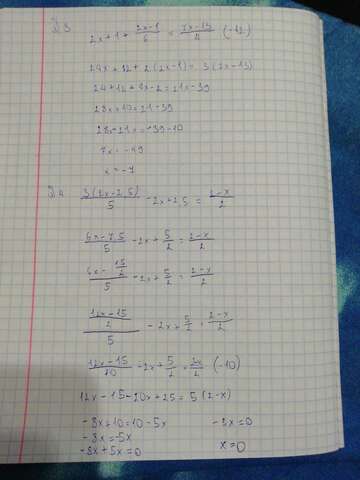 D 3
2x+1+ (2x-1)/6 = (7x-13)/4 (·12)
24x+12+2(2x-1)=3(7x-13)
24+12+4x-2=21x-39
28x+10=21-39
28x-21x=-39-10
7x=-49
x=-7
D 4
3(2x-2,5)/5 -2x+2,5 = (2-x)/2
(6x-7,5)/5 -2x+ 5/2 = (2-x)/2
(6x- 15/2)/5 -2x+ 5/2 = (2-x)/2
((12x-15)/2)/5 -2x+ 5/2 = (2-x)/2
(12x-15)/10 -2x+ 5/2 = (·10)
12x-15-20x+25=5(2-x)
-8x+10=10-5x -3x=0
-8x=-5x
-8x+5x=0 x=0